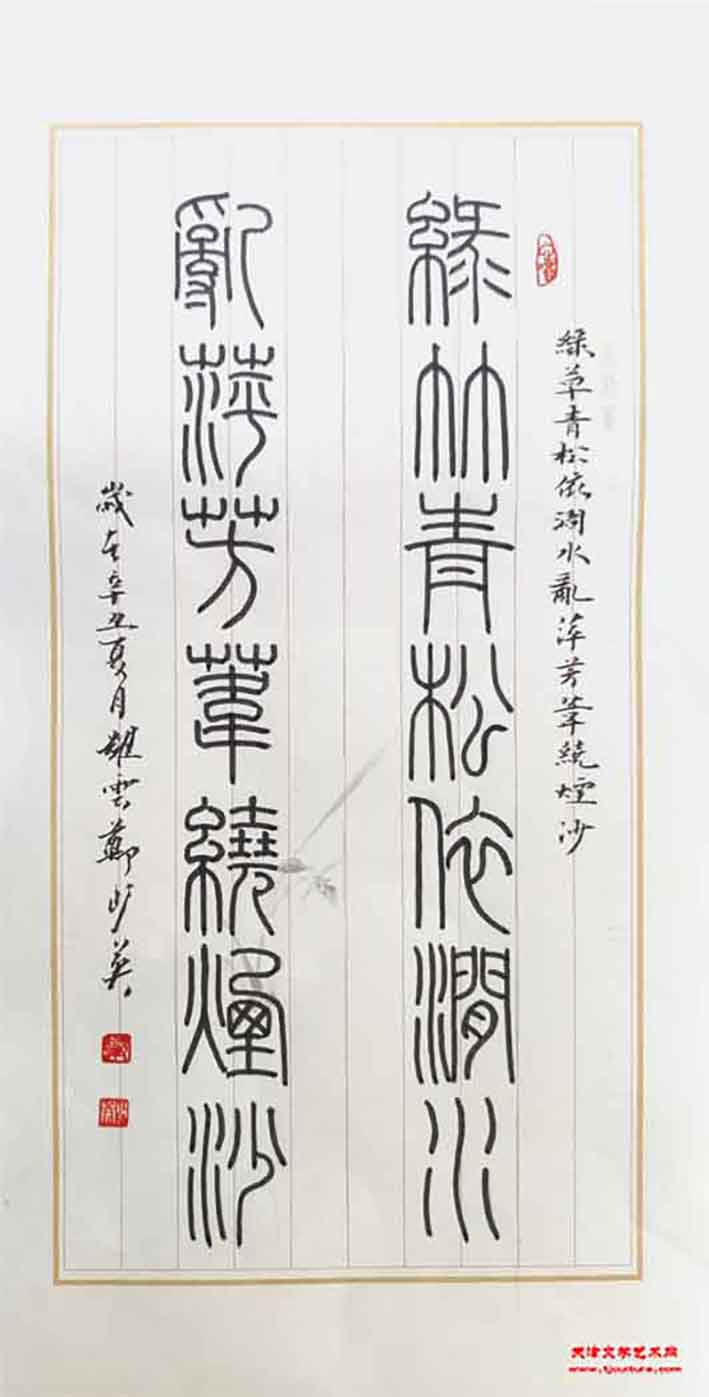 綠草青松依澗水亂萍芳葦繞煙沙
綠竹青松依澗水
亂萍芳葦繞煙沙
歲在辛丑夏月 雲鄭 英
天津文学艺术网